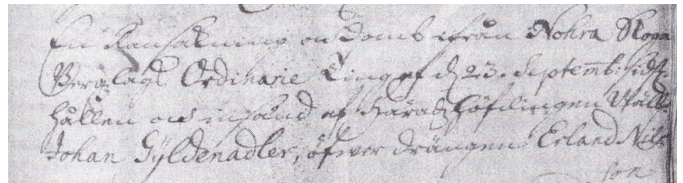 En Ransakning och Domb ifrån Nohra Skoga
Bergzlags Ordinarie Ting af d 23. Septemb: sidst
hållen och insänd af Häradzhöfdingen Wäll:
Johan Gyldenadler, öfwer drängen Erland Nils
son